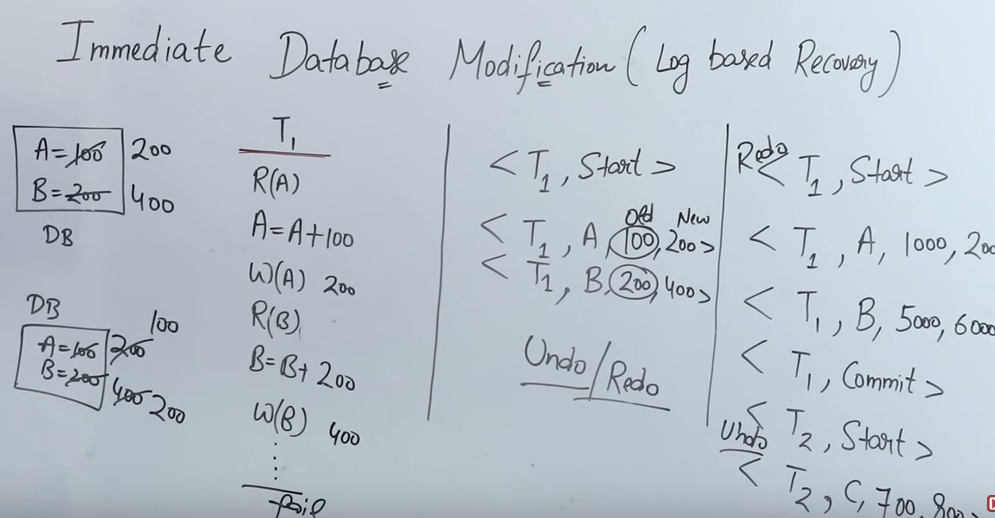 Immediate Database Modification (Log based Recovery)
A=100 200
B=200 400
DB
DB
100
A=100 200
B=200 400 200
T1
R(A)
A=A+100
W(A) 200
R(B)
B=B+200
W(B) 400
fail
<T1, Start>
Old New
<T1, A, 100, 200>
<T1, B, 200, 400>
Undo/Redo
Redo
<T1, Start>
<T1, A, 1000, 200
<T1, B, 5000, 6000
<T1, Commit>
<T2, Start>
Undo
<T2, C, 700, 800